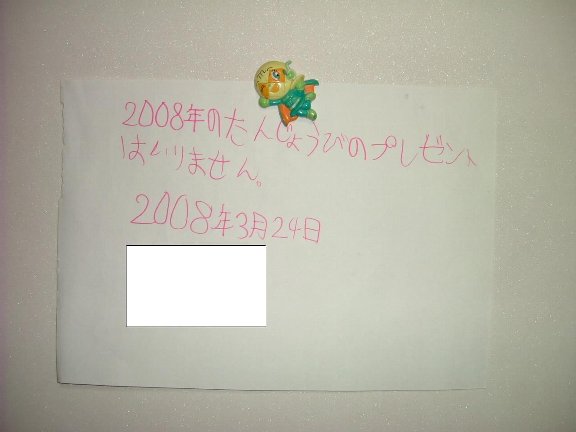 2008年のたんじょうびのプレゼント
はいりません。
2008年3月24日